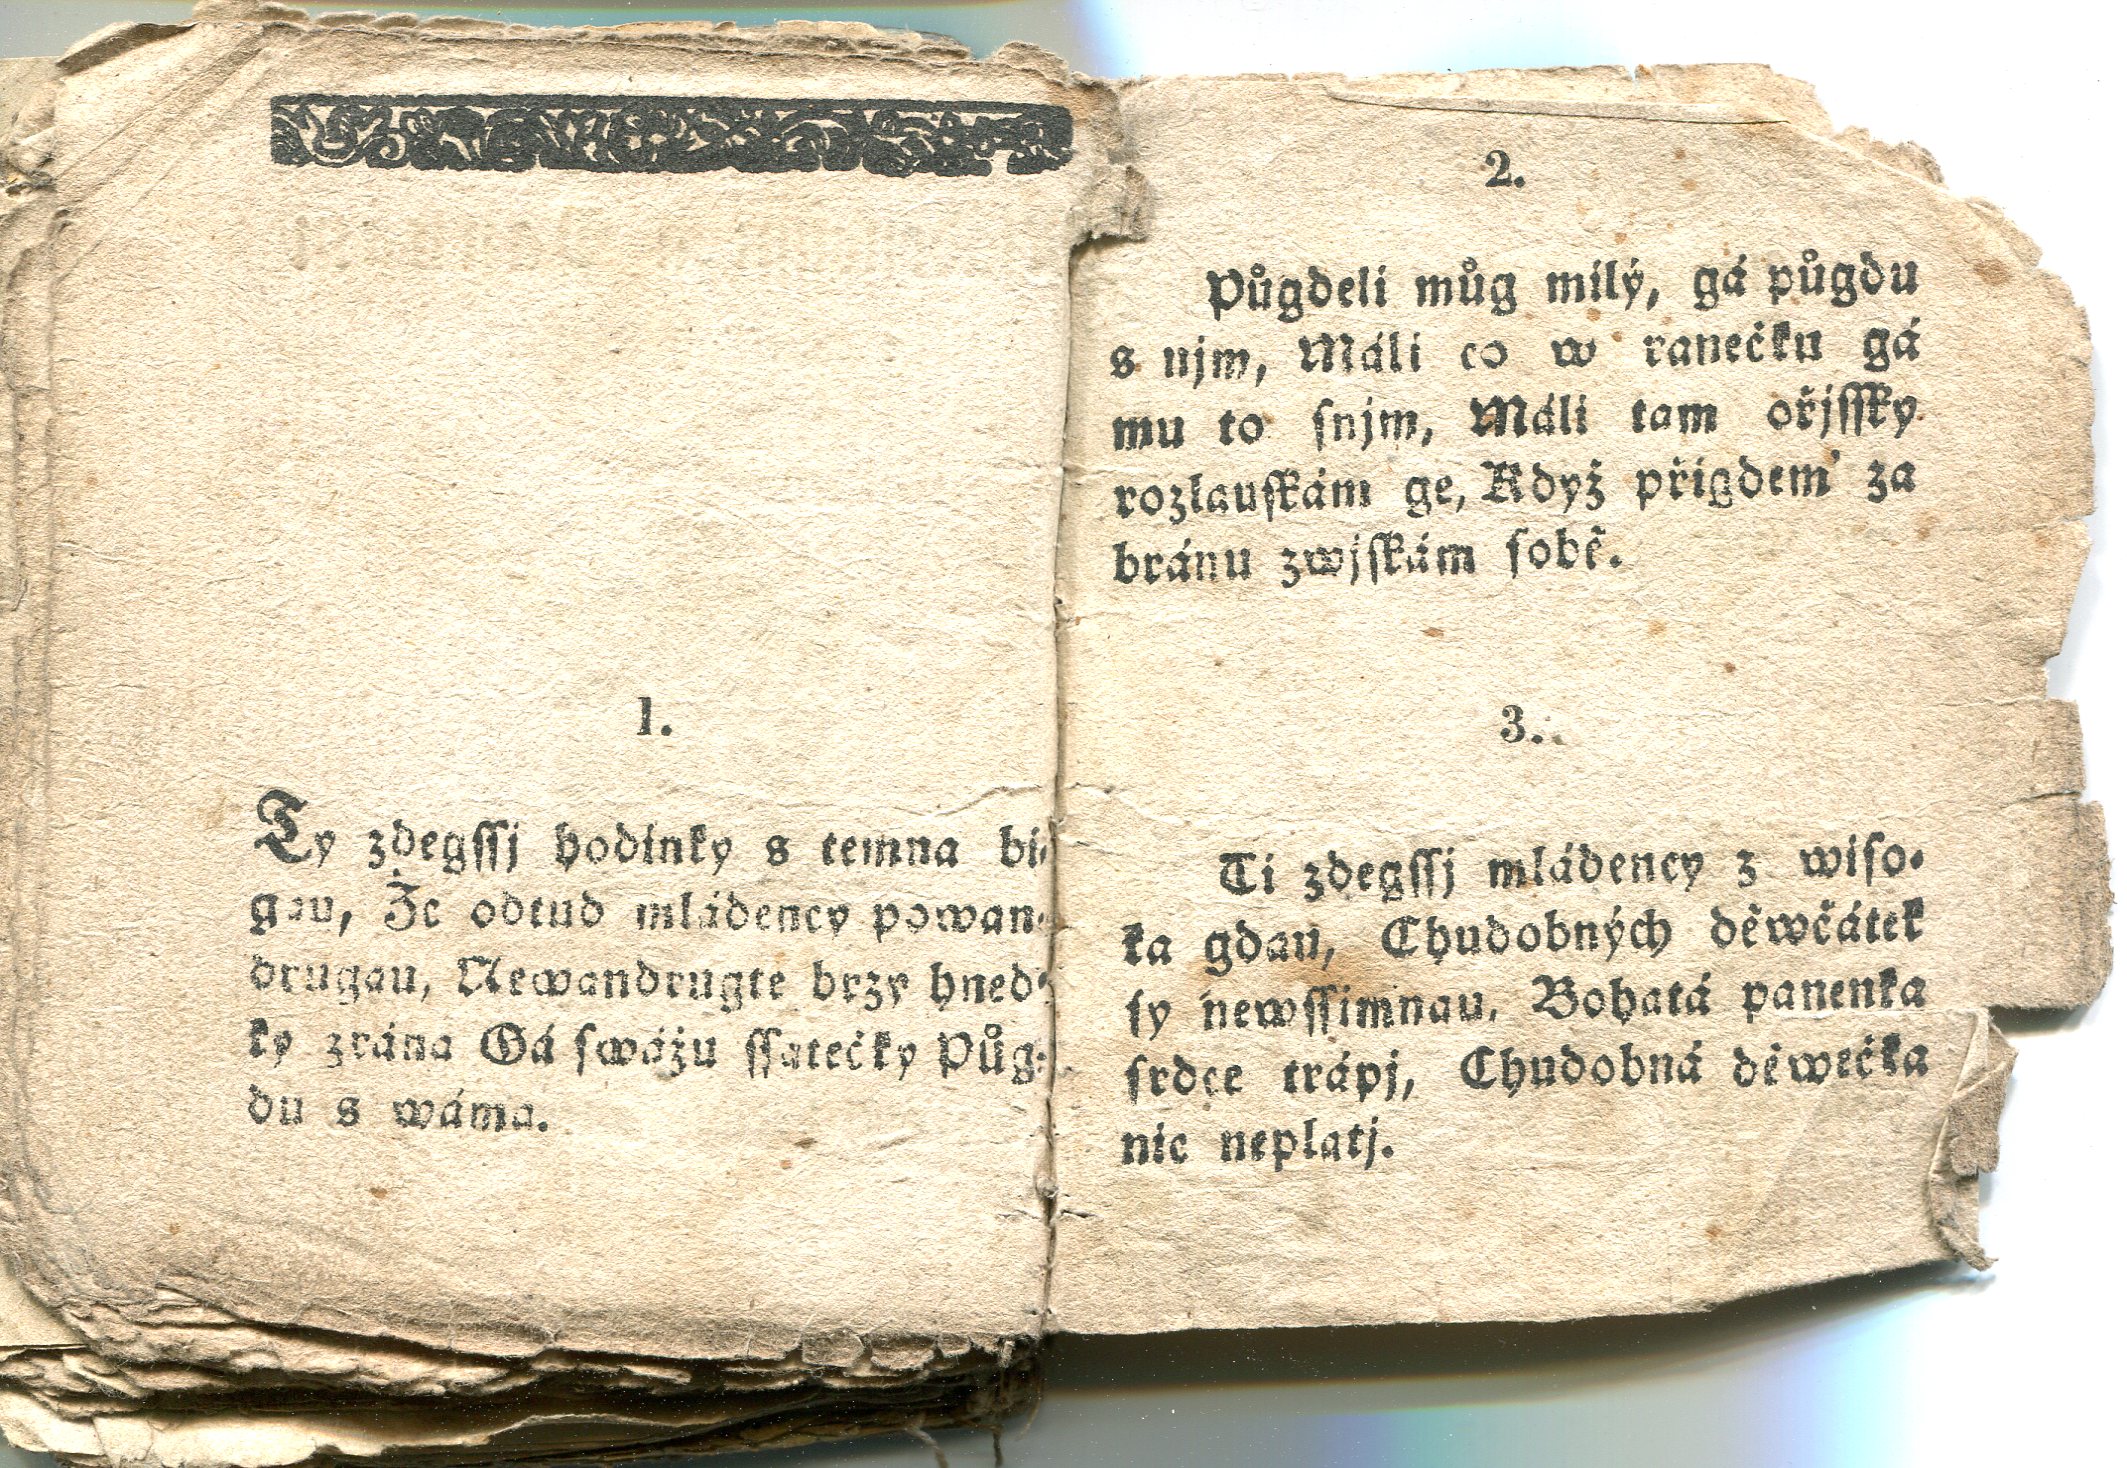 1.
Ty zdegssj hodinky s temna bi-
gau, Že odtud mládency powan-
drugau, Newandrugte brzy hned-
ky zrána Gá swážu ssatečky Půg-
du s wáma.
2.
Půgdeli můg milý, gá půgdu
s njm, Máli co w ranečku gá
mu to snjm, Máli tam ořjssky
rozlauskám ge, Když přigdem za
bránu zwjskám sobě.
3.
Ti zdegssj mládency z wiso-
ka gdau, Chudobných děwčátek
sy newssimnau, Bohatá panenka
srdce trápj, Chudobná děwečka
nic neplatj.